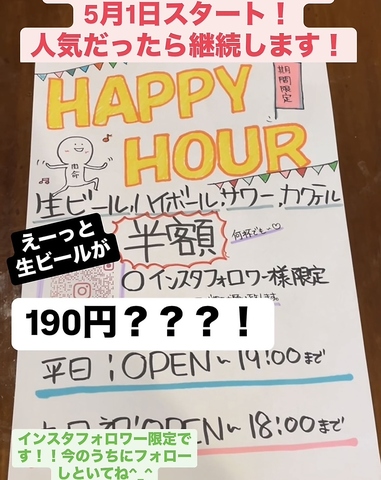 5月1日スタート！
人気だったら継続します！
期間限定
HAPPY
HOUR
生ビール、ハイボール、サワー、カクテル
えーっと
生ビールが
半額
何杯でも〜♡
○インスタフォロワー様限定
190円？？？！
平日：OPEN〜19:00まで
OPEN〜18:00まで
インスタフォロワー限定で
す！！今のうちにフォロー
しといてね^_^